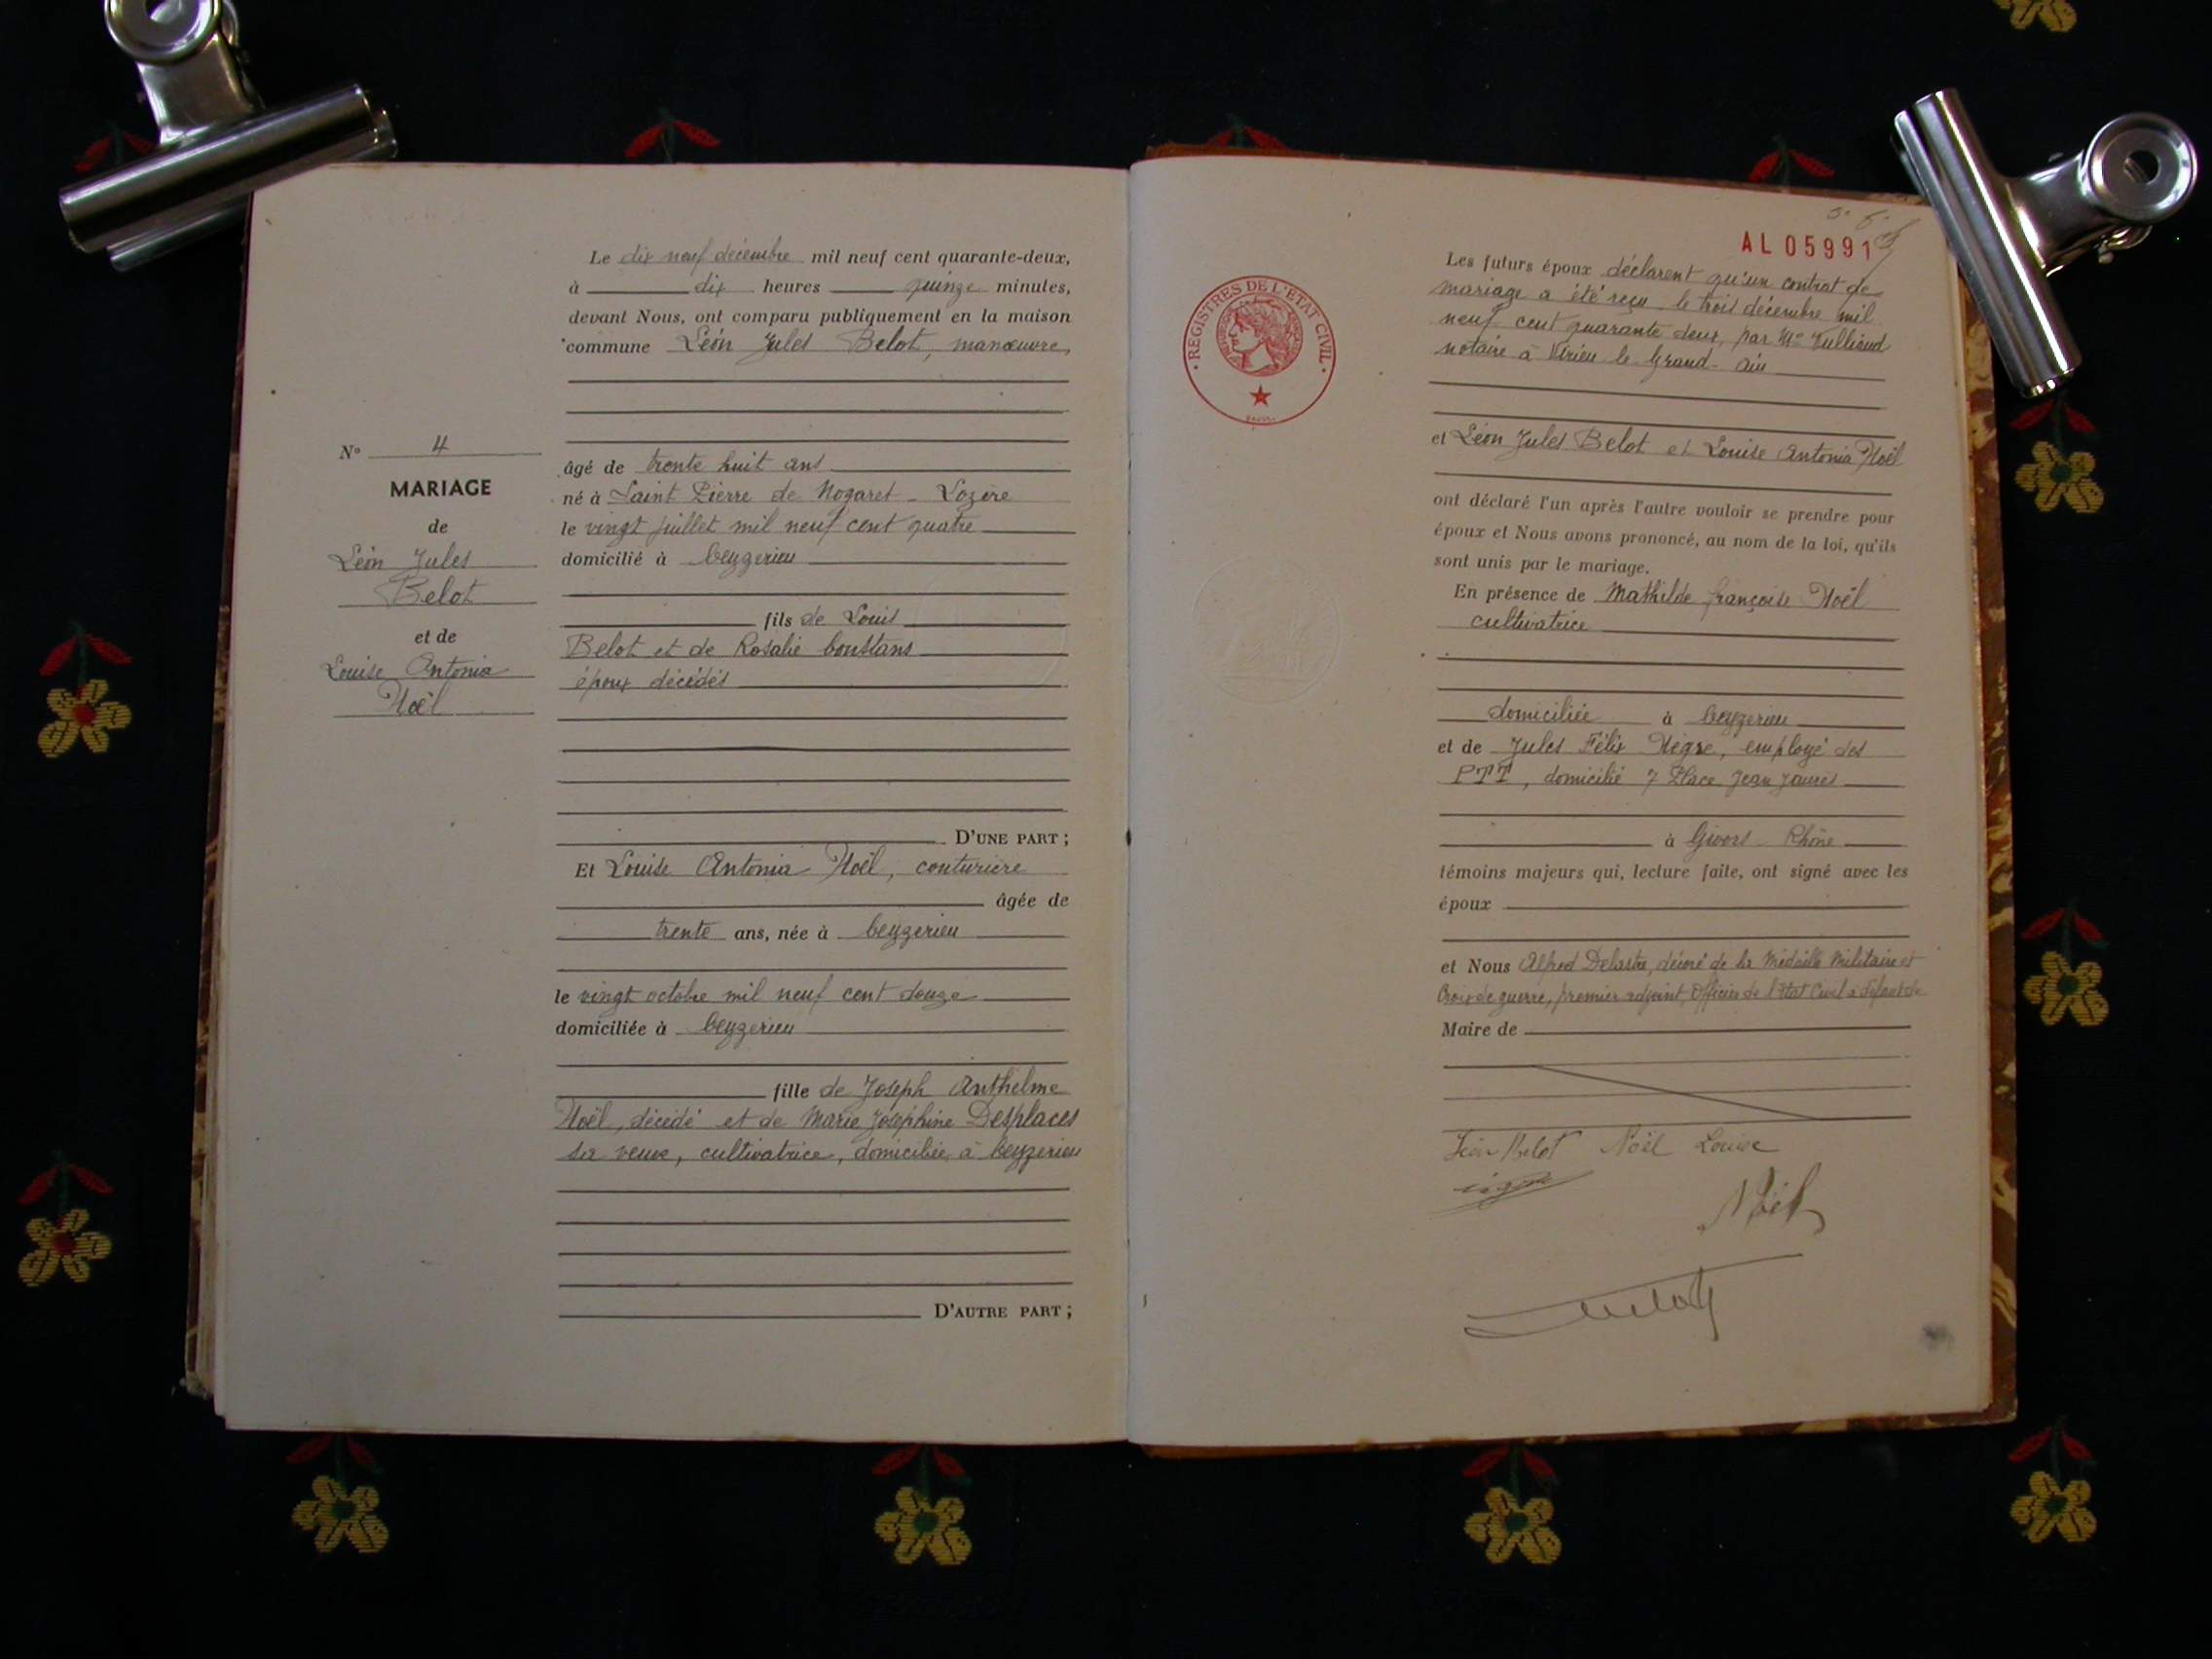 Le dix neuf décembre mil neuf cent quarante-deux,
à dix heures quinze minutes,
devant Nous, ont comparu publiquement en la maison
commune Léon Jules Belot, manœuvre,
N° 4
MARIAGE
de
Léon Jules
Belot
et de
Louise Antonia
Noël
âgé de trente huit ans
né à Saint Pierre de Nogaret - Lozère
le vingt juillet mil neuf cent quatre
domicilié à Ceyzerieu
fils de Louis
Belot et de Rosalie Coustans
époux décédés
D'UNE PART ;
Et Louise Antonia Noël, couturière
âgée de
trente ans, née à Ceyzerieu
le vingt octobre mil neuf cent douze
domiciliée à Ceyzerieu
fille de Joseph Anthelme
Noël, décédé et de Marie Joséphine Desplaces
sa veuve, cultivatrice, domiciliée à Ceyzerieu
D'AUTRE PART ;
AL 05991
REGISTRES DE L'ETAT CIVIL
Les futurs époux déclarent qu'un contrat de
mariage a été reçu le trois décembre mil
neuf cent quarante deux, par Me
notaire à Virieu le Grand - Ain
et Léon Jules Belot et Louise Antonia Noël
ont déclaré l'un après l'autre vouloir se prendre pour
époux et Nous avons prononcé, au nom de la loi, qu'ils
sont unis par le mariage.
En présence de Mathilde françoise Noël
cultivatrice
domiciliée à Ceyzerieu
et de Jules Félix Nègre, employé des
PTT, domicilié 7 Place Jean Jaurès
à Givors - Rhône
témoins majeurs qui, lecture faite, ont signé avec les
époux
et Nous Alfred Delastre, décoré de la Médaille Militaire et
Croix de guerre, premier adjoint, Officier de l'Etat Civil à défaut de
Maire de
Léon Belot Noël Louise
Noël